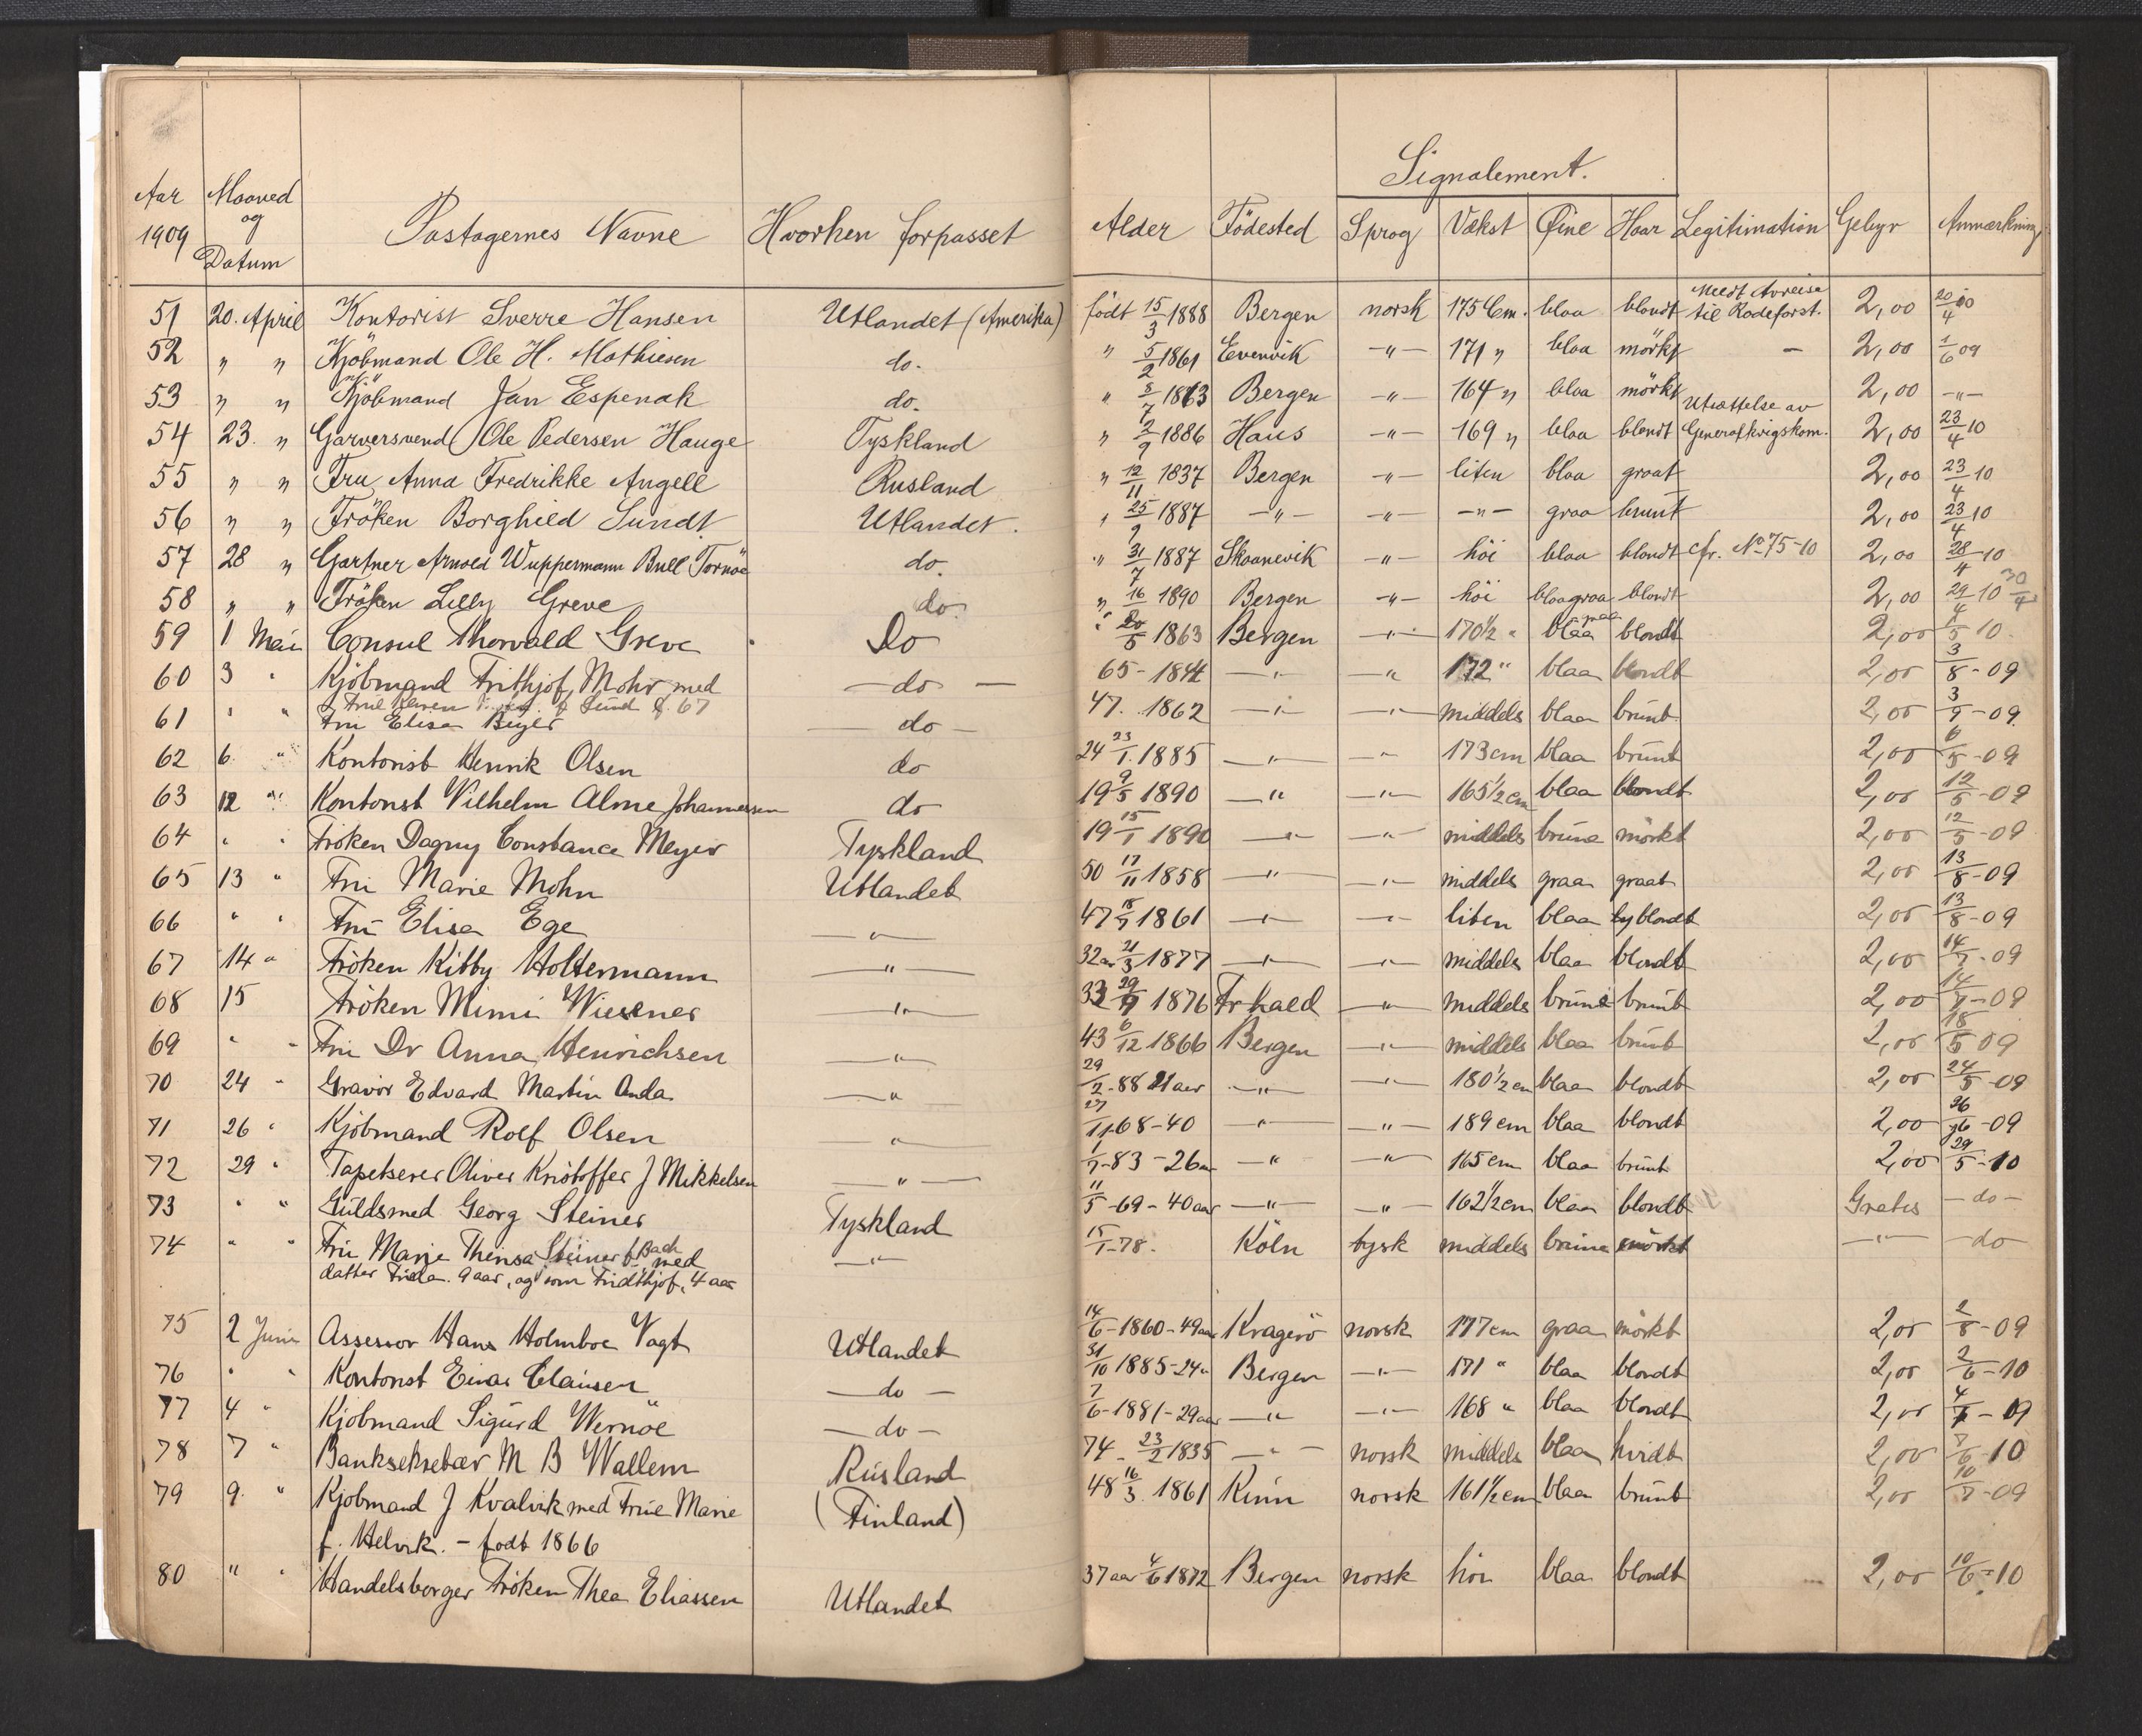 Signalement.
Aar 1909 Maaned og Datum Pastagernes Navne Hvorhen forpasset Alder Födested Sprog Vækst Øine Haar Legitimation Gebyr Anmærkning
51 20. April Kontorist Sverre Hansen Utlandet (Amerika) født 15/3 1888 Bergen norsk 175 Cm. blaa blondt meldt Avreise til Rodeforst. 2,00 20/4 10
52 " " Kjöbmand Ole H. Mathiesen do. " 5/2 1861 Evenvik -"- 171 " blaa mörkt - 2,00 1/6 09
53 " " Kjöbmand Jan Espenak do. " 8/7 1863 Bergen -"- 164 " blaa mörkt 2,00 -"-
54 23. " Garversvend Ole Pedersen Hauge Tyskland " 2/9 1886 Haus -"- 169 " blaa blondt Utsættelse av Generalkrigskom. 2,00 23/4 10
55 " " Fru Anna Fredrikke Angell Rusland " 12/11 1837 Bergen -"- liten blaa graat 2,00 23/4 10
56 " " Fröken Borghild Sundt Utlandet. " 25/9 1887 -"- -"- -"- graa brunt 2,00 23/4 10
57 28 " Gartner Arnold Wuppermann Bull Tornöe do. " 31/7 1887 Skaanevik -"- höi blaa blondt cfr. No 75-10 2,00 28/4 10
58 " " Fröken Lilly Greve do. " 16/ 1890 Bergen -"- höi blaagraa blondt 2,00 29/4 10 30/4
59 1 Mai Consul Thorvald Greve Do " 20/5 1863 Bergen -"- 170 1/2 " blaa blondt 2,00 1/5 10.
60 3 " Kjöbmand Frithjof Mohr med do 65 - 1844 -"- -"- 172 " blaa blondt 2,00 3/8 - 09
61 " " Fru Elisa Beyer do 47. 1862 -"- -"- middels blaa brunt 2,00 3/9 - 09
62 6 " Kontorist Henrik Olsen do 24 23/1. 1885 -"- -"- 173 cm blaa brunt 2,00 6/5 - 09
63 12 " Kontorist Vilhelm Alme Johannessen do 19 9/5 1890 -"- -"- 165 1/2 cm blaa blondt 2,00 12/5 - 09
64 " " Fröken Dagny Constance Meyer Tyskland 19 15/1 1890 -"- -"- middels brune mörkt 2,00 12/5 - 09
65 13 " Fru Marie Mohn Utlandet 50 17/11 1858 -"- -"- middels graa graat 2,00 13/8 - 09
66 " " Fru Elisa Ege -"- 47 18/7 1861 -"- -"- liten blaa lyblondt 2,00 13/8 - 09
67 14 " Fröken Kitty Holtermann -"- 32 aar 21/3 1877 -"- -"- middels blaa blondt 2,00 14/7 - 09
68 15 Fröken Mimi Wiesener -"- 33 29/ 1876 Frhald -"- middels brune brunt 2,00 14/7 - 09
69 " " Fru Dr Anna Henrichsen -"- 43 6/12 1866 Bergen -"- middels blaa brunt 2,00 18/5 09
70 24 " Gravör Edvard Martin Anda -"- 29/2 - 88 21 aar -"- -"- 180 1/2 cm blaa blondt 2,00 24/5 - 09
71 26 " Kjöbmand Rolf Olsen -"- 27/11 - 68 - 40 -"- -"- 189 cm blaa blondt 2,00 26/6 - 09
72 29 " Tapetserer Oliver Kristoffer J Mikkelsen -"- 1/7 - 83 - 26 aar -"- -"- 165 cm blaa brunt 2,00 29/5 - 10
73 " " Guldsmed Georg Steiner Tyskland 11/5 - 69 - 40 aar -"- -"- 162 1/2 cm blaa blondt Gratis - do -
74 " " Fru Marie Steiner f. Bach med -"- 15/1 - 78. Köln tysk middels brune mörkt -"- do
datter Frida 9 aar, og søn Fridthjof, 4 aar
75 2 Juni Assessor Hans Holmboe Vogt Utlandet 14/6 - 1860 - 49 aar Kragerö norsk 177 cm graa mörkt 2,00 2/8 - 09
76 " " Kontorist Einar Clausen do 31/10 1885 - 24 " Bergen -"- 171 " blaa blondt 2,00 2/6 - 10
77 4 " Kjöbmand Sigurd Wernöe do 7/6 - 1881 - 29 aar -"- -"- 168 " blaa blondt 2,00 4/7 - 09
78 7 " Banksekretær M B Wallem Rusland 74 - 23/2 1835 -"- norsk middels blaa hvidt 2,00 7/6 10
79 9. " Kjöbmand J Kvalvik med frue Marie (Finland) 48 16/3. 1861 Kinn norsk 161 1/2 cm blaa brunt 2,00 10/7 - 09
f. Helvik. - født 1866
80 " " Handelsborger Fröken Thea Eliassen Utlandet 37 aar 4/6 1872 Bergen norsk höi blaa blondt 2,00 10/6 - 10